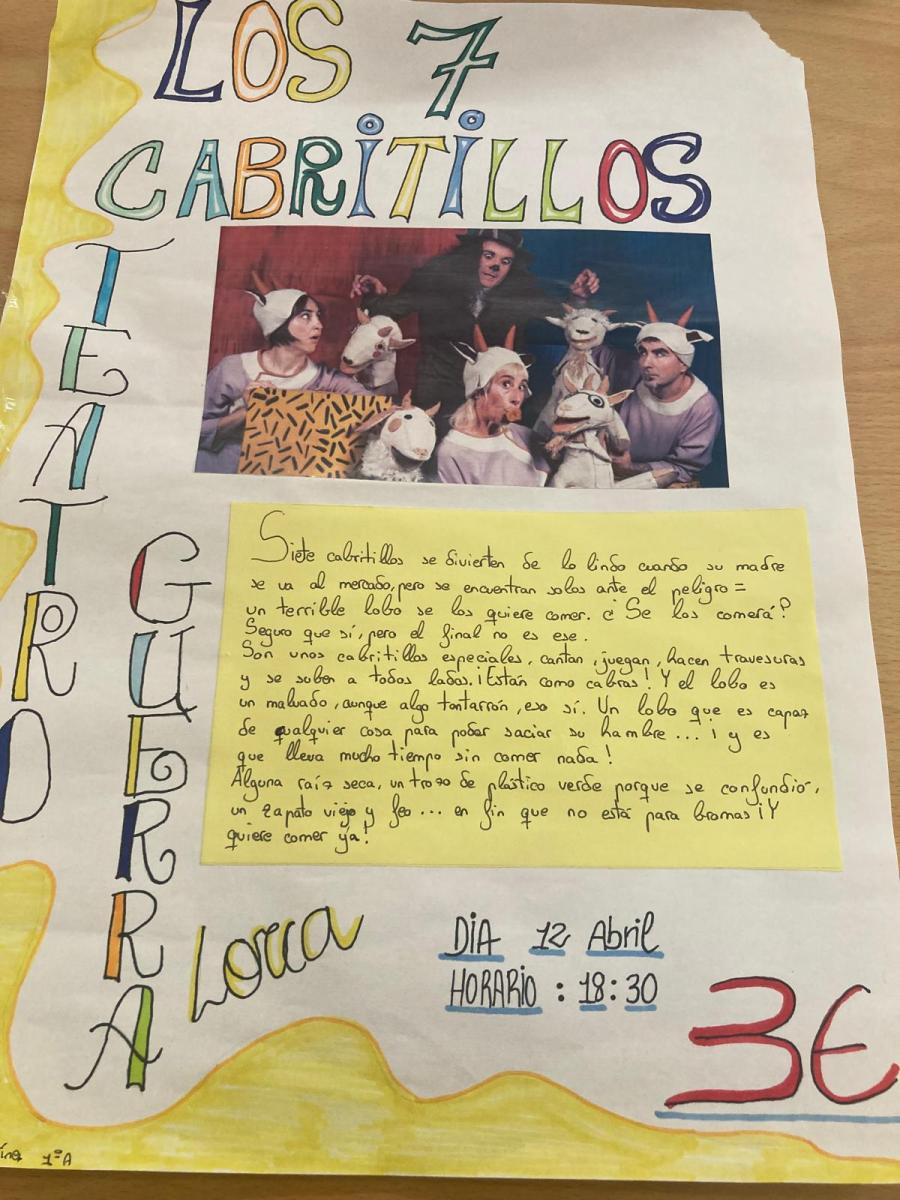 LOS 7
CABRITILLOS
TEATRO
GUERRA
Siete cabritillos se divierten de lo lindo cuando su madre
se va al mercado, pero se encuentran solos ante el peligro=
un terrible lobo se los quiere comer. ¿Se los comerá?
Seguro que sí, pero el final no es ese.
Son unos cabritillos especiales, cantan, juegan, hacen travesuras
y se suben a todos lados. ¡Están como cabras! Y el lobo es
un malvado, aunque algo tontarrón, eso sí. Un lobo que es capaz
de cualquier cosa para poder saciar su hambre... ¡y es
que lleva mucho tiempo sin comer nada!
Alguna raíz seca, un trozo de plástico verde porque se confundió,
un zapato viejo y feo... en fin que no está para bromas ¡Y
quiere comer ya!
Lorca
DIA 12 Abril
HORARIO: 18:30
3€
1ºA